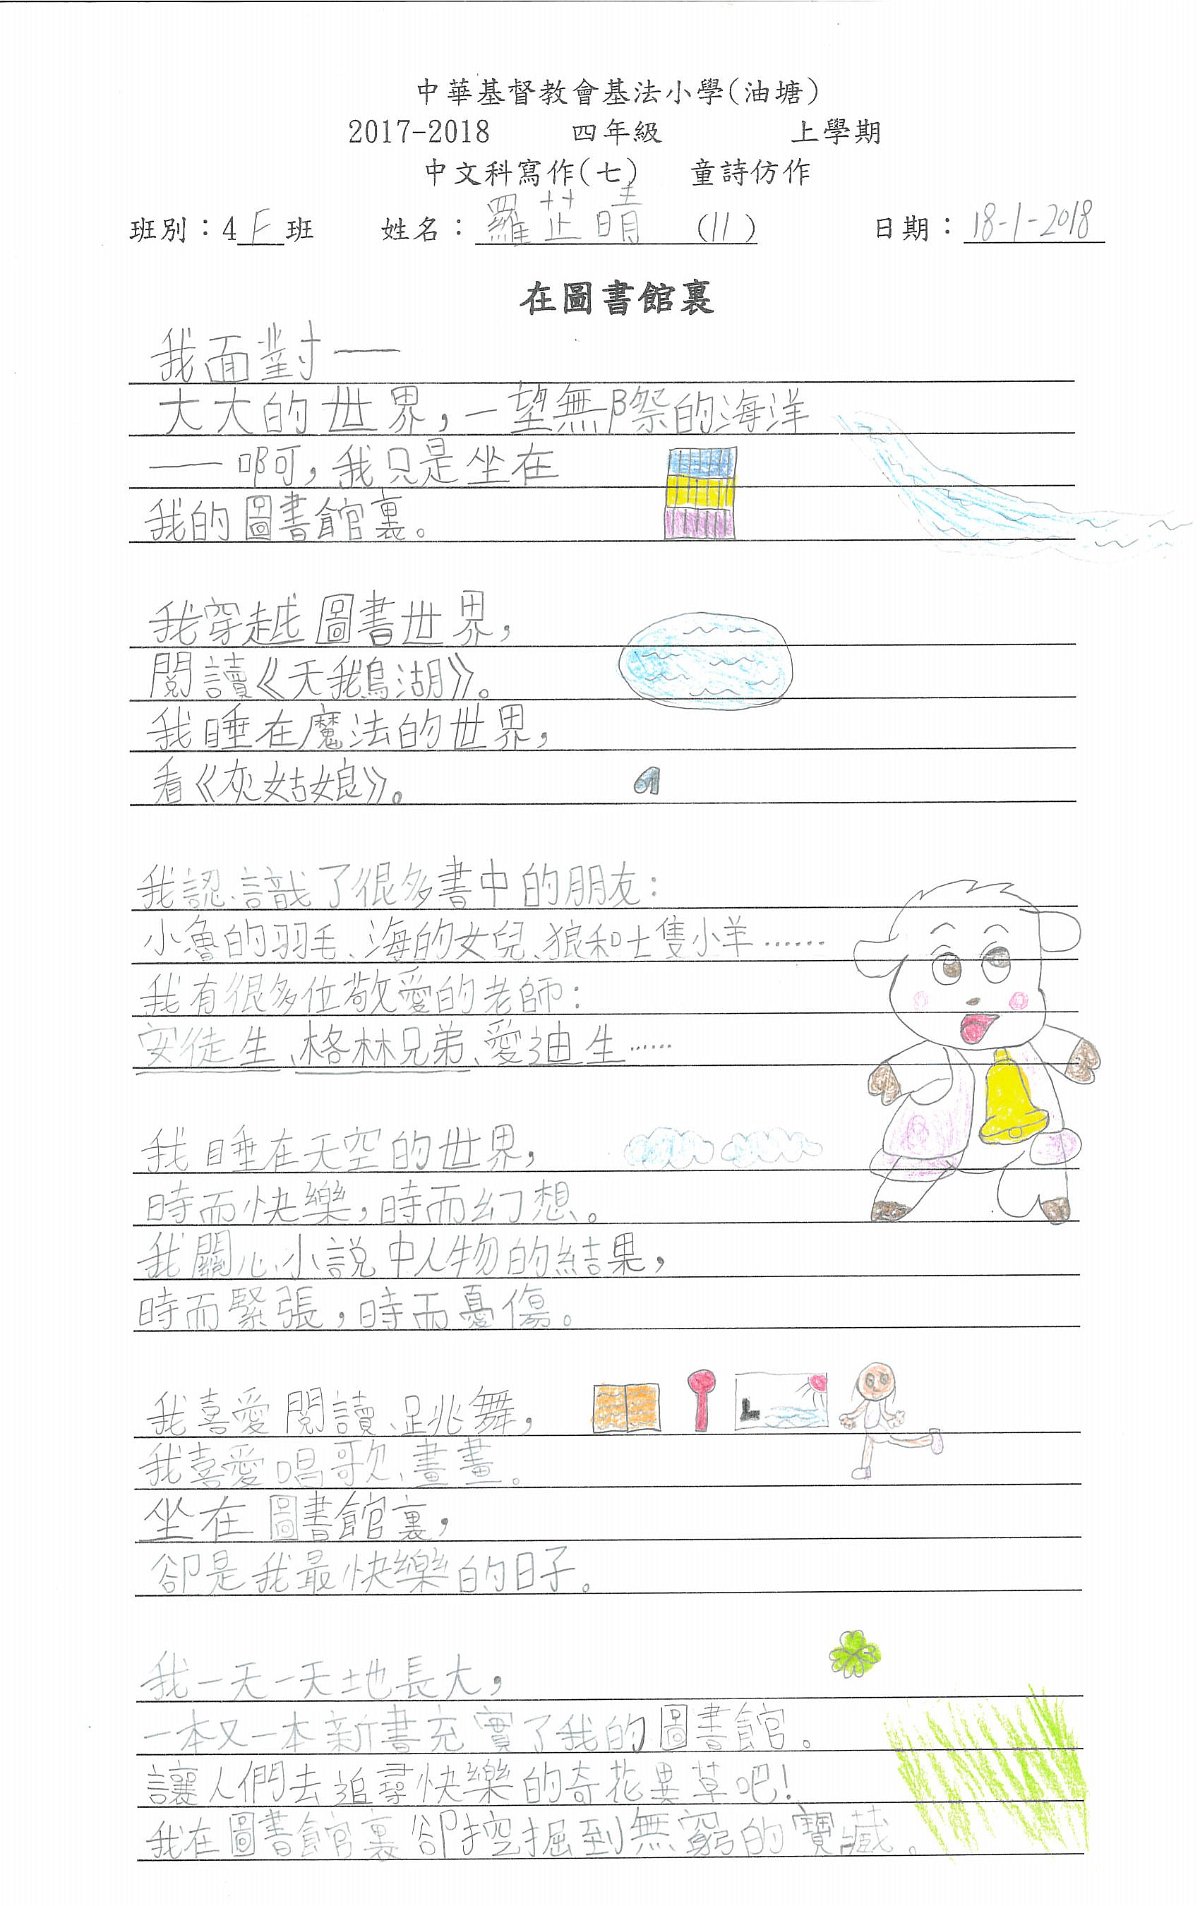 中華基督教會基法小學(油塘)
2017-2018 四年級 上學期
中文科寫作(七) 童詩仿作
班別：4F班 姓名：羅芷晴 (11) 日期：18-1-2018
在圖書館裏
我面對──
大大的世界，一望無際的海洋
──啊，我只是坐在
我的圖書館裏。
我穿越圖書世界，
閱讀《天鵝湖》。
我睡在魔法的世界，
看《灰姑娘》。
我認識了很多書中的朋友：
小魯的羽毛、海的女兒、狼和七隻小羊……
我有很多位敬愛的老師：
安徒生、格林兄弟、愛迪生……
我睡在天空的世界，
時而快樂，時而幻想。
我關心小說中人物的結果，
時而緊張，時而憂傷。
我喜愛閱讀、跳舞，
我喜愛唱歌、畫畫。
坐在圖書館裏，
卻是我最快樂的日子。
我一天一天地長大，
一本又一本新書充實了我的圖書館。
讓人們去追尋快樂的奇花異草吧！
我在圖書館裏卻挖掘到無窮的寶藏。